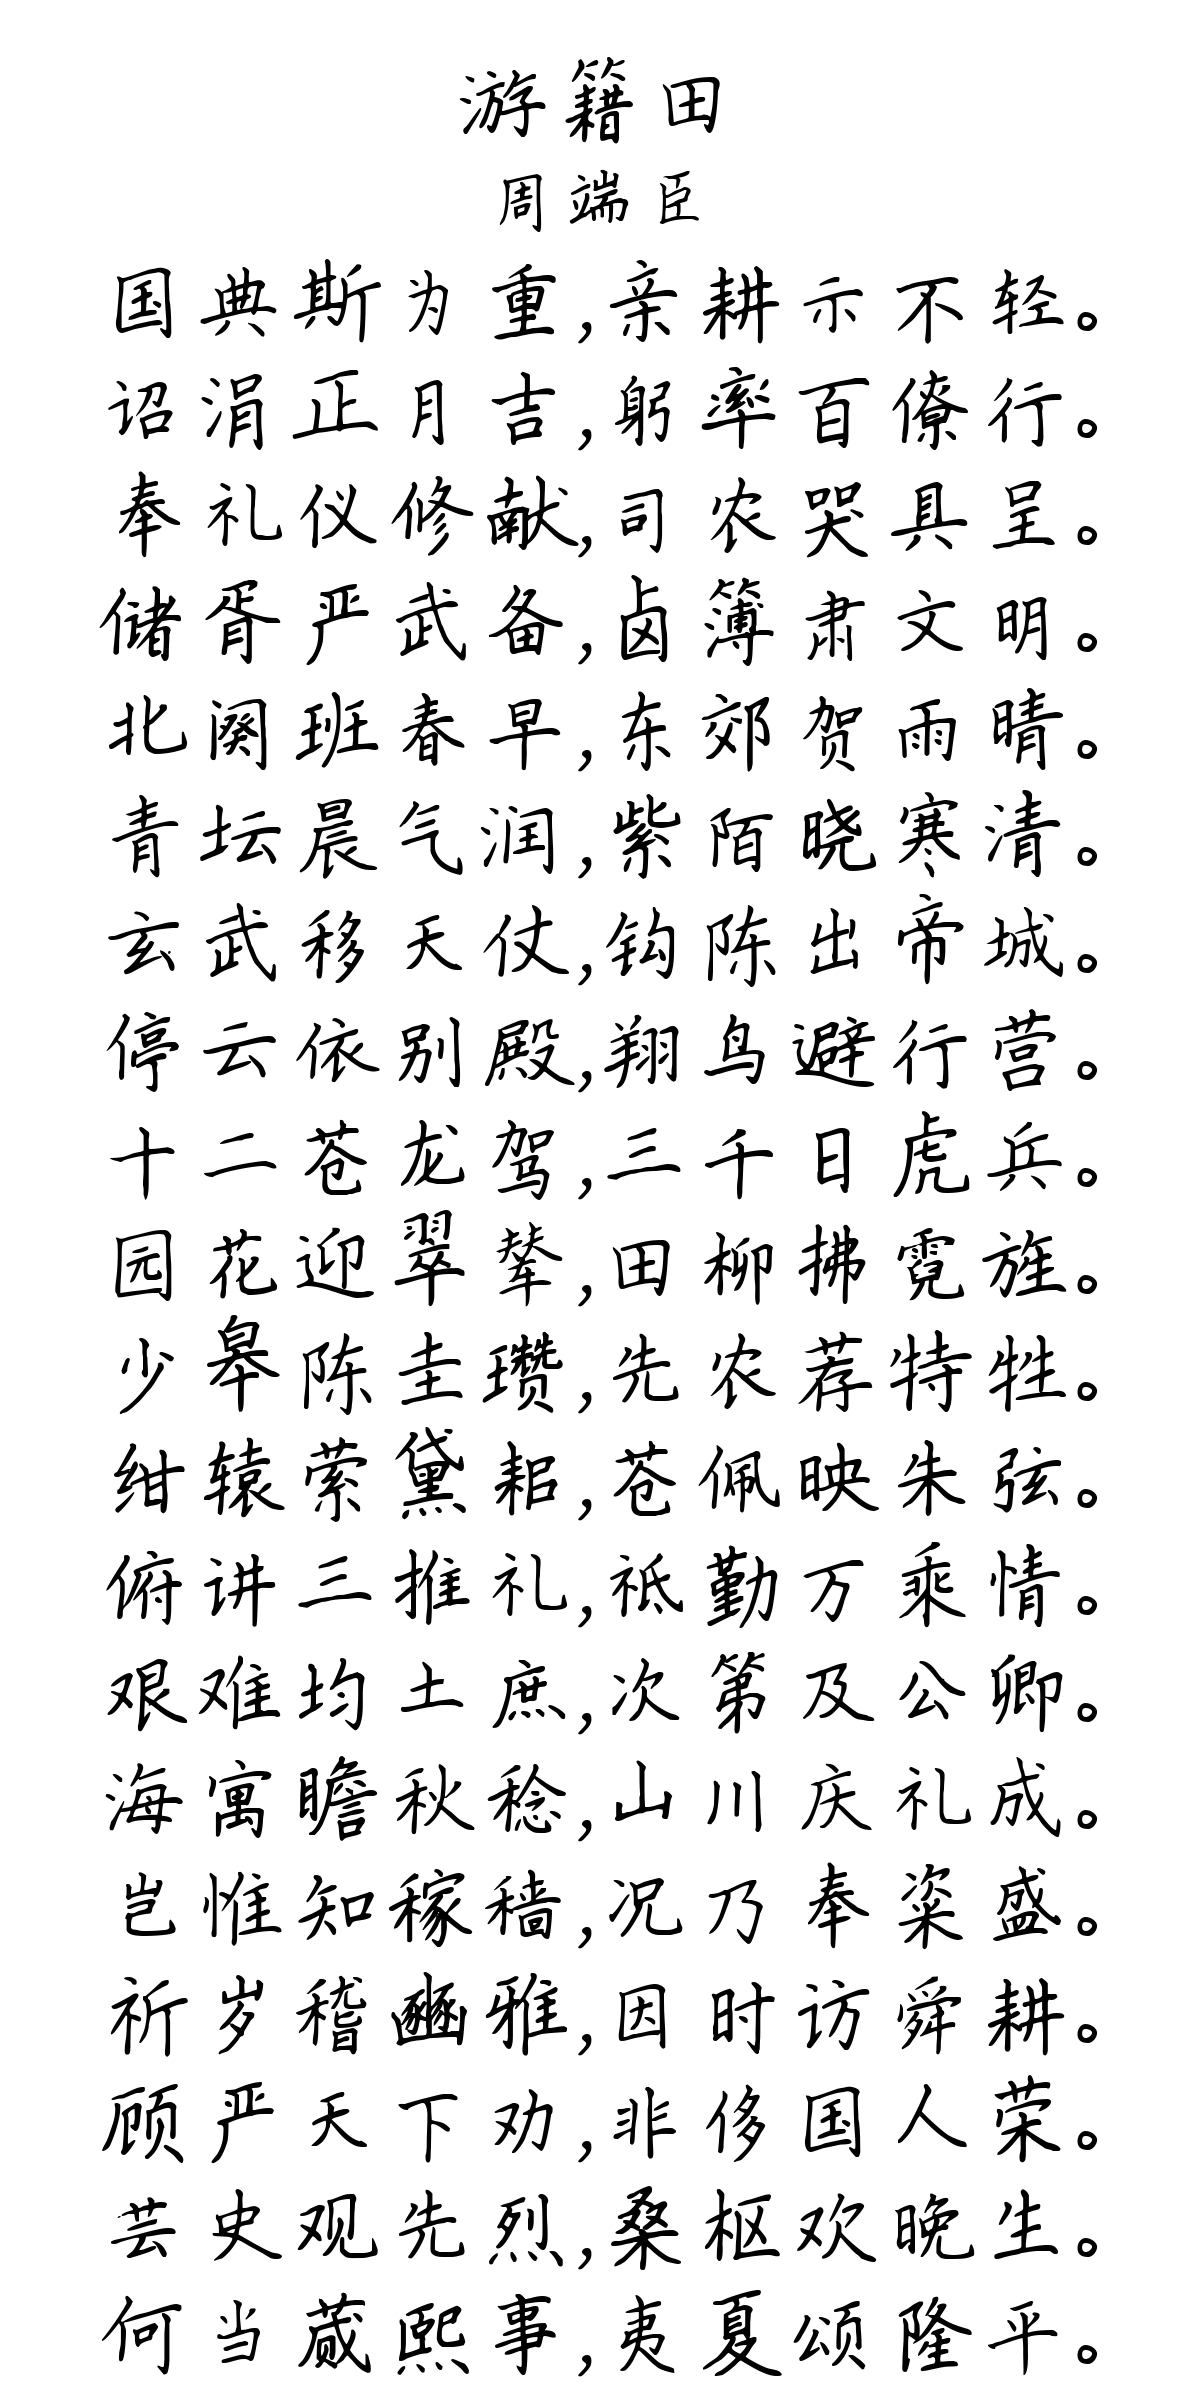 游籍田
周端臣
国典斯为重,亲耕示不轻。
诏涓正月吉,躬率百僚行。
奉礼仪修献,司农哭具呈。
储胥严武备,卤簿肃文明。
北阕班春早,东郊贺雨晴。
青坛晨气润,紫陌晓寒清。
玄武移天仗,钩陈出帝城。
停云依别殿,翔鸟避行营。
十二苍龙驾,三千日虎兵。
园花迎翠辇,田柳拂霓旌。
少皋陈圭瓒,先农荐特牲。
绀辕萦黛耜,苍佩映朱弦。
俯讲三推礼,祗勤万乘情。
艰难均土庶,次第及公卿。
海寓瞻秋稔,山川庆礼成。
岂惟知稼穑,况乃奉粢盛。
祈岁稽豳雅,因时访舜耕。
顾严天下劝,非侈国人荣。
芸史观先烈,桑枢欢晚生。
何当蒇熙事,夷夏颂隆平。